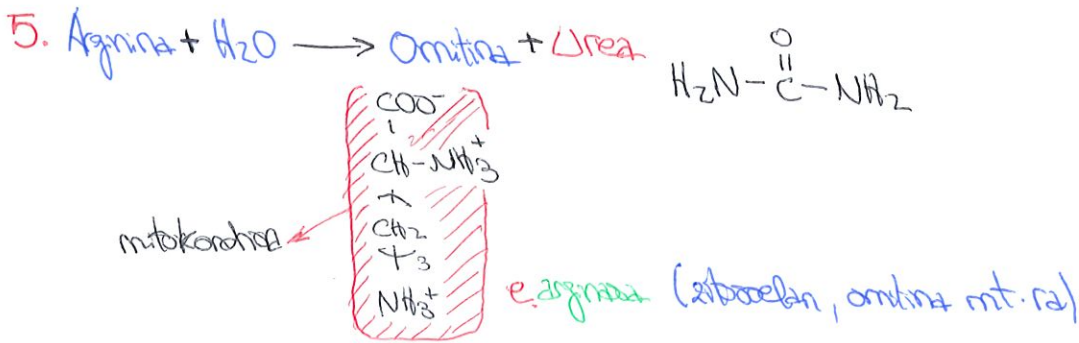 5. Arginina + H₂O → Ornitina + Urea
O
||
H₂N-C-NH₂
COO⁻
|
CH-NH₃⁺
|
CH₂
| 3
NH₃⁺
mitokondria
e. arginasa (zitosolean, ornitina mt.ra)